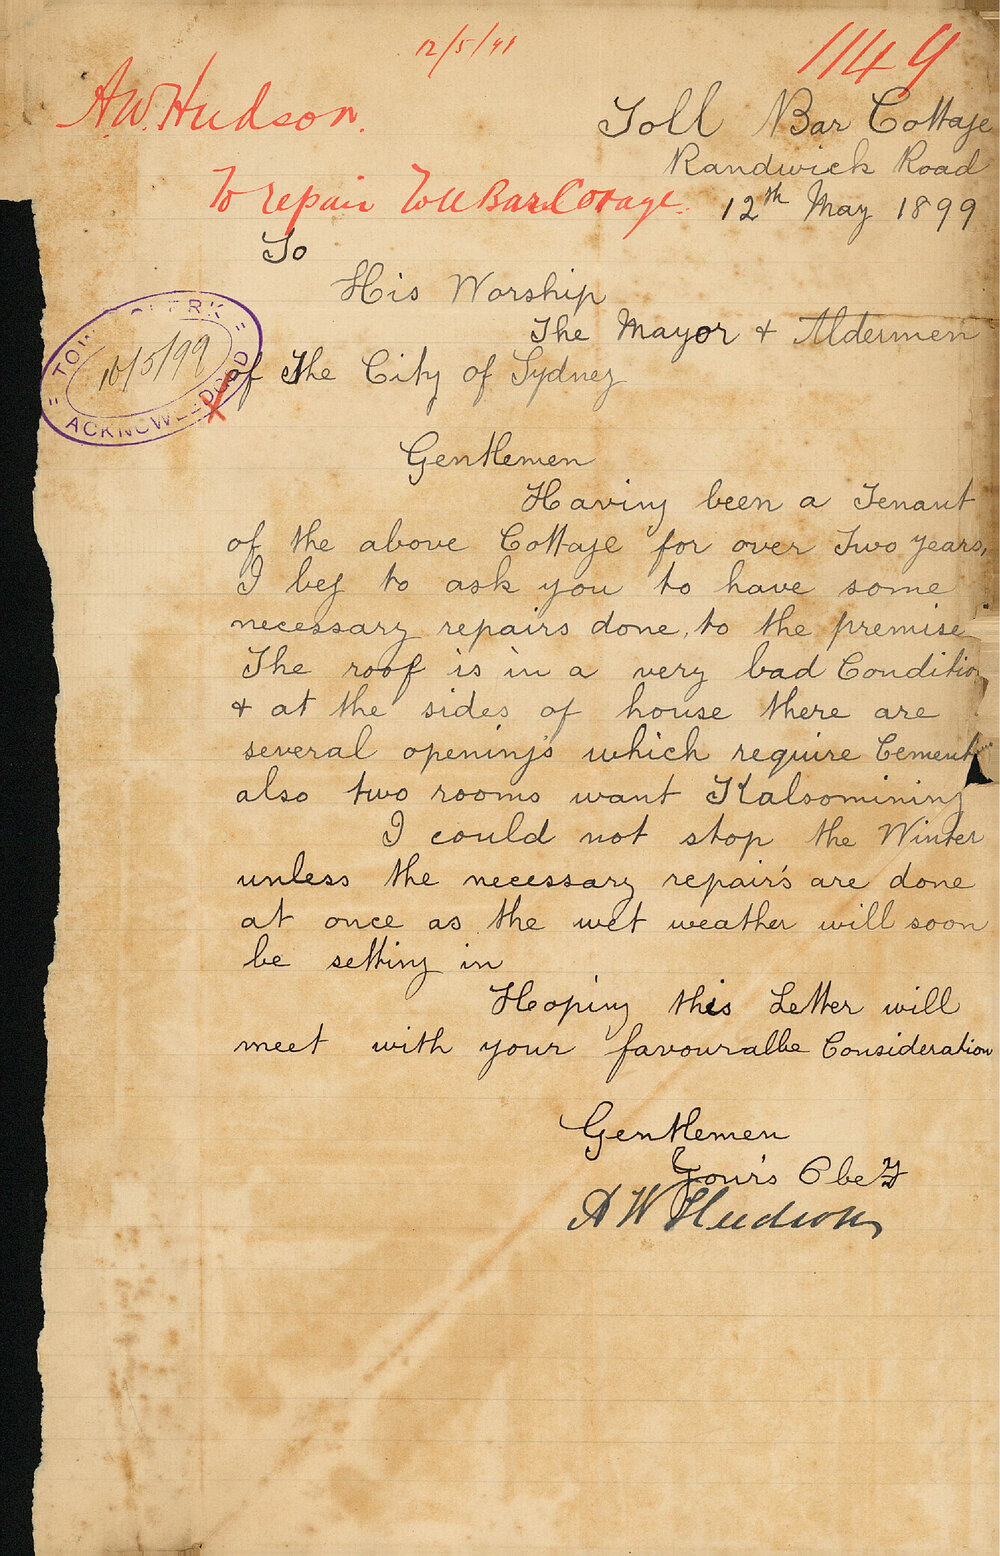 12/5/99
1149
A.W. Hudson.
Toll Bar Cottage
Randwick Road
To repair Toll Bar Cottage.
12th May 1899
To
His Worship
The Mayor & Aldermen
of The City of Sydney
TOWN CLERK
/5/99
ACKNOWLEDGED
Gentlemen
Having been a Tenant
of the above Cottage for over Two years,
I beg to ask you to have some
necessary repairs done, to the premise
The roof is in a very bad Condition
& at the sides of house there are
several opening's which require Cement
also two rooms want Kalsomining
I could not stop the Winter
unless the necessary repair's are done
at once as the wet weather will soon
be setting in
Hoping this Letter will
meet with your favouralbe Consideration
Gentlemen
Your's Obe't
A W Hudson